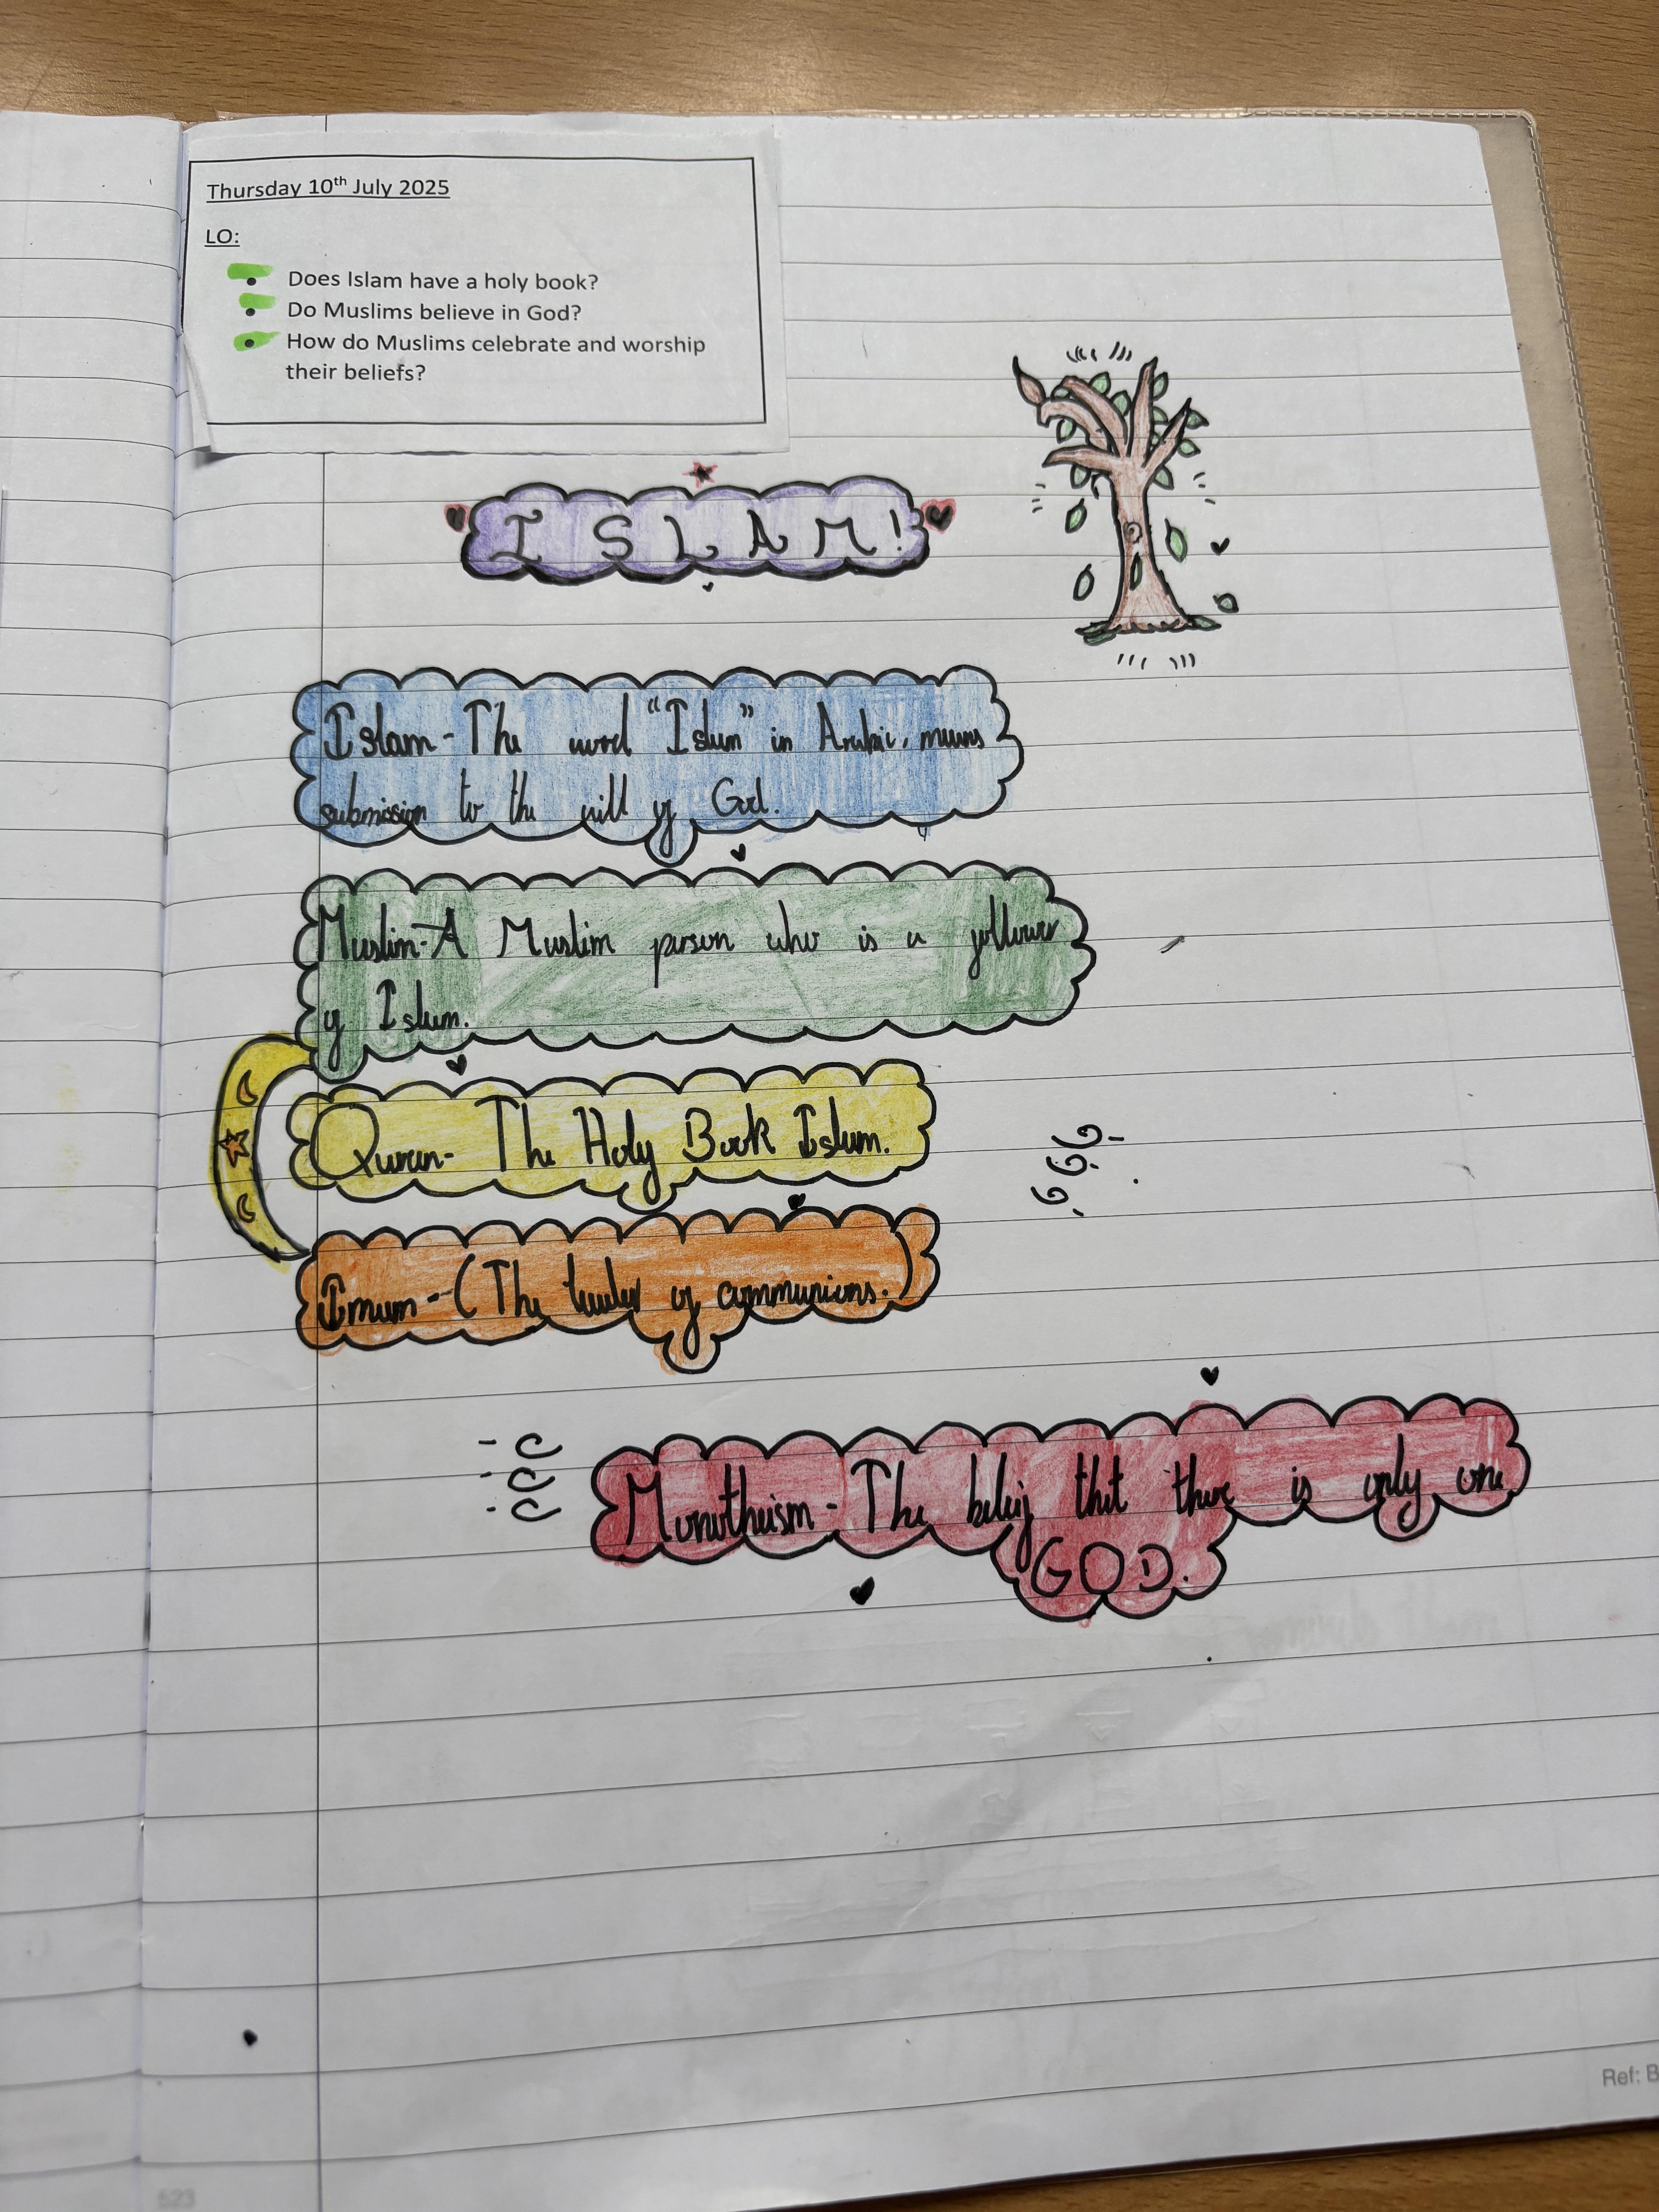 Thursday 10th July 2025
LO:
• Does Islam have a holy book?
• Do Muslims believe in God?
• How do Muslims celebrate and worship
their beliefs?
ISLAM!
Islam - The word "Islam" in Arabic, means
submission to the will of God.
Muslim - A Muslim person who is a follower
of Islam.
Quran - The Holy Book Islam.
Imam - (The leader of communions.)
Monotheism - The belief that there is only one
GOD.
Ref: B
523